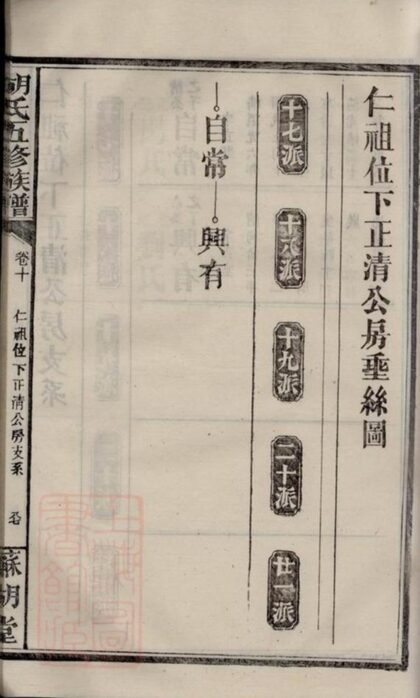 仁祖位下正清公房垂絲圖
十七派
十八派
十九派
二十派
廿一派
自常
興有
胡氏五修族譜
卷十
仁祖位下正清公房支系
蘇湖堂